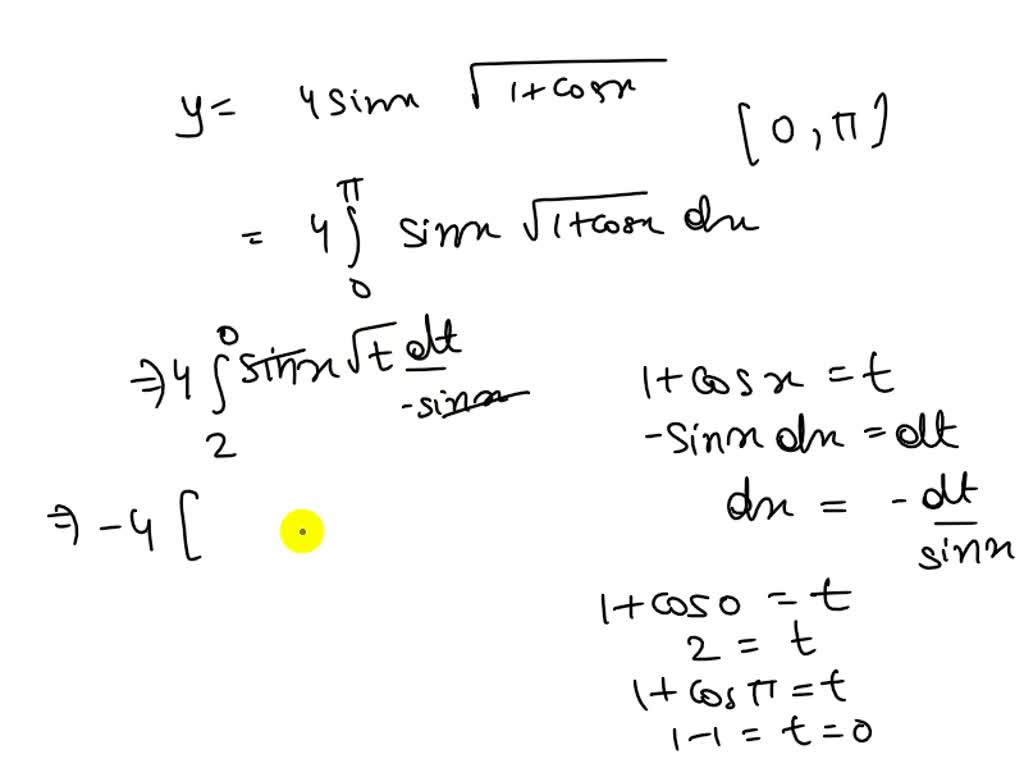 y = 4 sinx √(1+cosx) [0, π]
= 4 ∫₀^π sinx √(1+cosx) dx
⇒ 4 ∫₂⁰ sinx √t dt/-sinx
⇒ -4 [
1+cosx = t
-sinx dx = dt
dx = -dt/sinx
1+cos0 = t
2 = t
1+cosπ = t
1-1 = t = 0